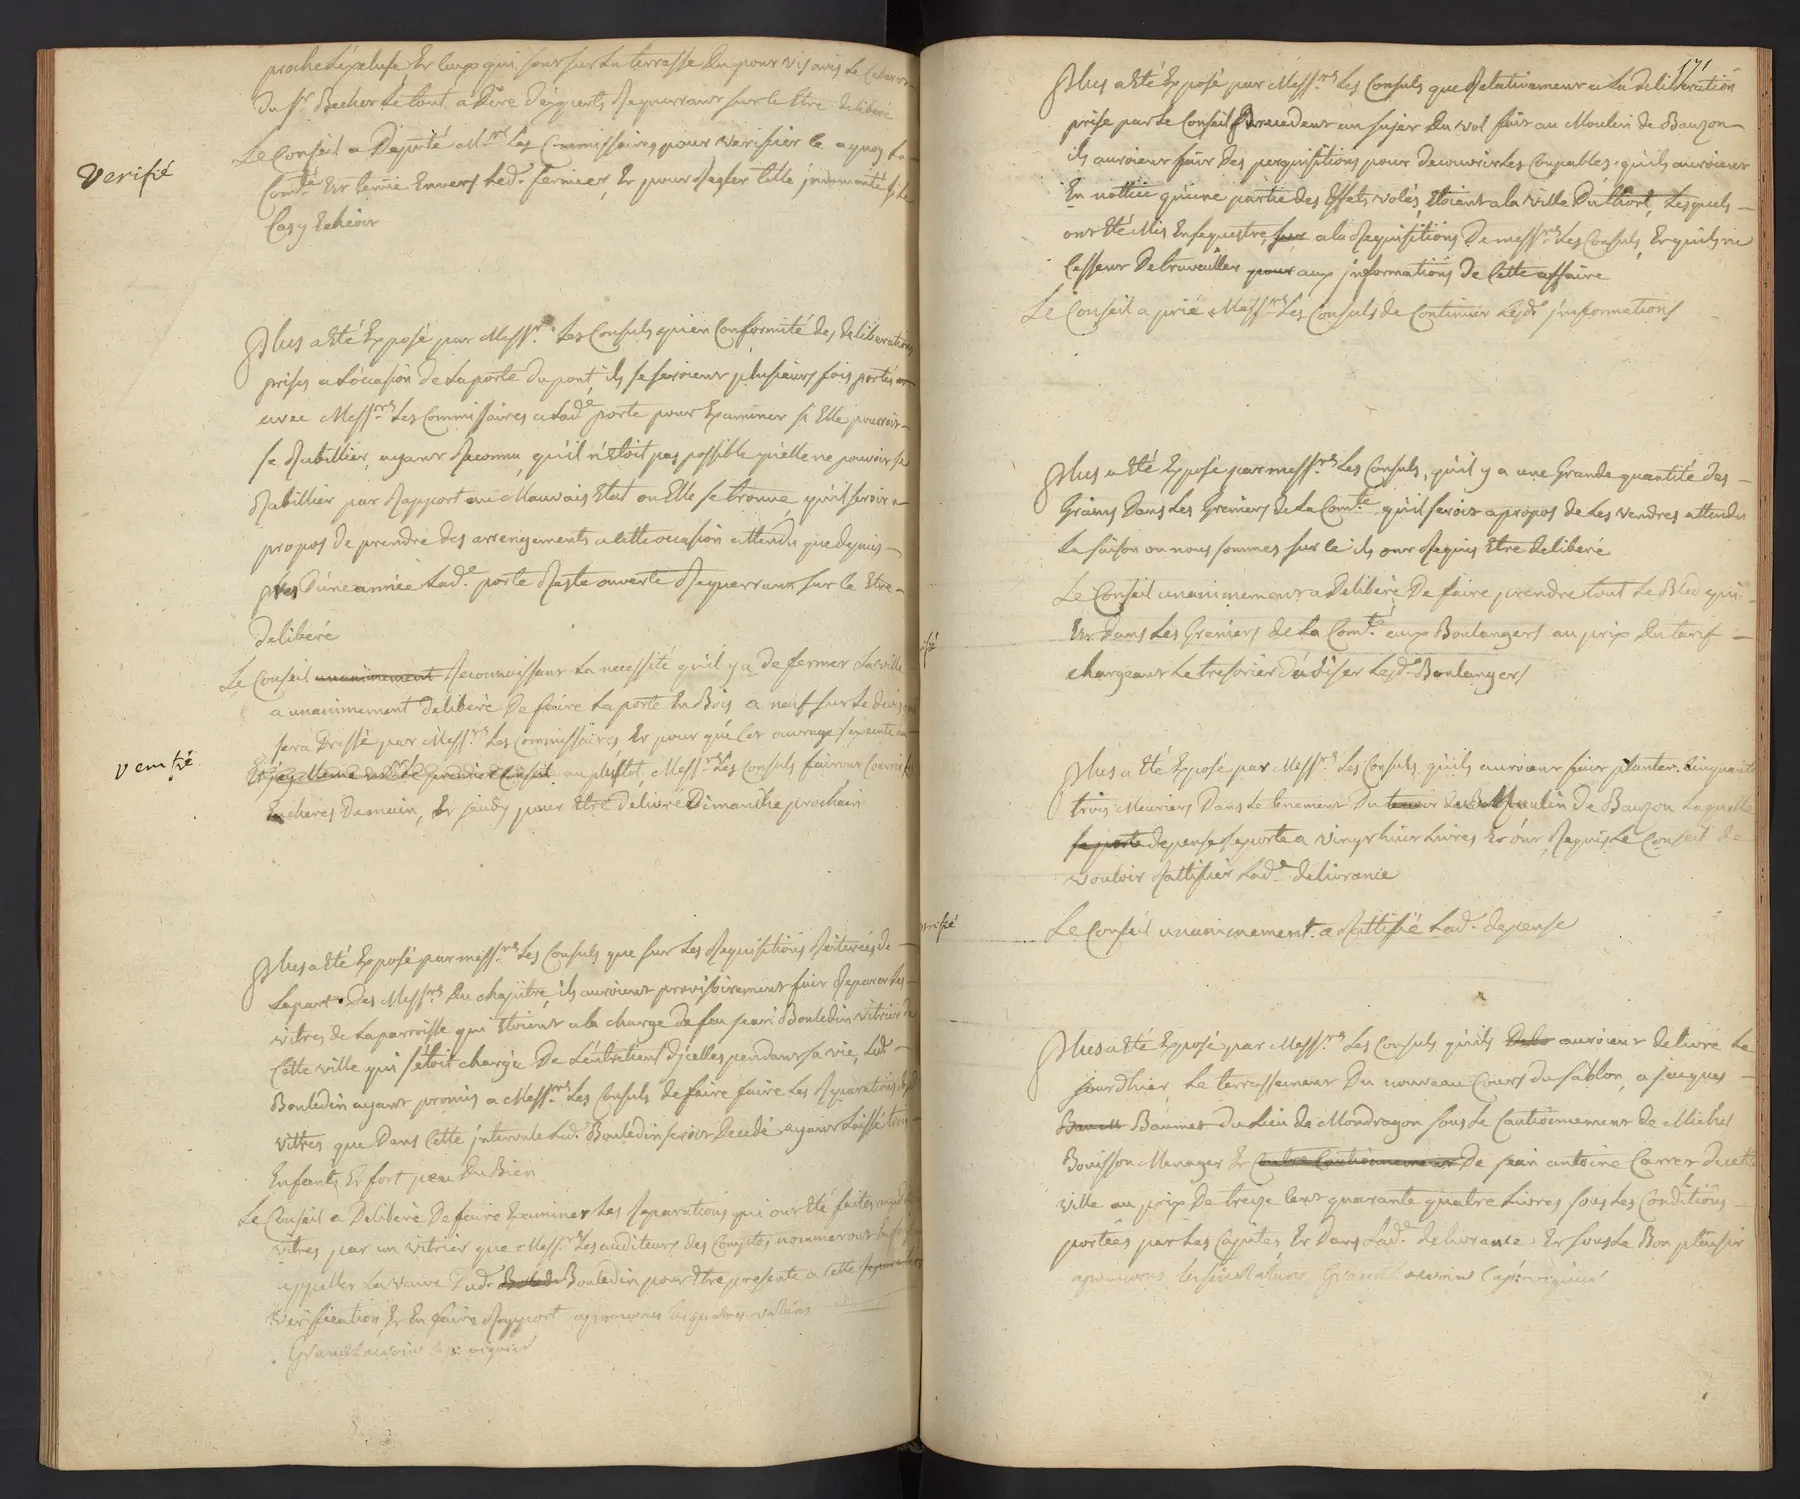 proche L'écluse Et Ceux qui sont sur La terrasse Du pont vis avis Le
du Sr. Le tout a Dire d'éxperts Requerrant sur le Etre deliberé
Verifié
Le Conseil a Deputé Mrs. Les Commissaires pour verifier le a quoy La
Comté. Est tenüe Envers Led. fermier, Et pour Regler Cette jndemnité si Le
Cas y Echéoit
Plus a Eté Exposé par Messrs. Les Consuls qu'en Conformité des deliberations
prises a L'ócasion de La porte du pont, ils se seroient plusieurs fois portés
avec Messrs. Les Commissaires a Lade. porte pour Examiner si Elle pourroit
se Rabillier, ayant Reconnu, qu'il n'étoit pas possible qu'elle ne pouvoit se
Rabillier par Rapport au Mauvais Etat ou Elle se trouve, qu'il seroit a
propos de prendre des arrengements a cette occasion attendu que depuis
près D'une année Lade. porte Reste ouverte Requerrant sur le Etre
deliberé
Le Conseil unanimement Reconnoissant La necessité qu'il y a de fermer La ville
a unanimement deliberé De faire La porte En Bois a neuf sur Le devis qui
sera Dressé par Messrs. Les Commissaires, Et pour que Cet ouvrage s'execute
verifié
au plustot, Messrs. Les Consuls fairont Courrir les
Encheres Demain, Et jeudy pour Etre délivré Dimanche prochain
Plus a Eté Exposé par Messrs. Les Consuls que sur Les Requisitions Reiterées de
La part Des Messrs. Du chapitre, ils auroient provisoirement fait Reparer Les
vitres de La parroisse qui Etoient a la charge de feu jean Bouledin vitrier de
Cette ville qui s'étoit chargé De L'éntretient d'jcelles pendant sa vie, Led.
Bouledin ayant promis a Messrs. Les Consuls de faire faire Les Reparations
vitres que Dans Cette jntervale Led. Bouledin seroit Decedé ayant Laissé trois
Enfants, Et fort peu Du Bien
Le Conseil a Deliberé De faire Examiner Les Reparations qui ont Eté faites
vitres par un vitrier que Messrs. Les auditeurs des Comptes nommeront
appeller La veuve Dud. Bouledin pour Etre presente a Cette
verification, Et En faire Rapport approuvant
171
Plus a Eté Exposé par Messrs. Les Consuls que Relativement a La deliberation
prise par Le Conseil Precedent au sujet Du vol fait au Moulin de Bauzon
ils auroient fait Des perquisitions pour decouvrir Les Coupables, qu'ils auroient
Eu nottice qu'une partie des Effets volés, Etoient a la ville Du Lesquels
ont Eté Mis En sequestre, sur a la Requisitions De Messrs. Les Consuls, Et qu'ils ne
Cessent De travailler pour aux jnformations de Cette affaire
Le Conseil a prié Messrs. Les Consuls de Continuer Lesd. jnformations
Plus a Eté Exposé par Messrs. Les Consuls, qu'il y a une Grande quantité des
Grains Dans Les Greniers de La Comté. qu'il seroit a propos de Les vendres attendu
La saison ou nous sommes sur le ils ont Requis Etre deliberé
ifié
Le Conseil unanimement a Deliberé De faire prendre tout Le Bled qui
Est dans Les Greniers de La Comté. aux Boulangers au prix Du tarif
chargeant Le tresorier D'áviser Lesd. Boulangers
Plus a Eté Exposé par Messrs. Les Consuls, qu'ils auroient fait planter Cinquante
trois Meuriers Dans Le tenement Du Moulin de Bauzon Laquelle
se porte depense se porte a vingt huit Livres Et ont Requis Le Conseil de
vouloir Rattifier Lade. delivrance
verifié
Le Conseil unanimement a Rattifié Lad. depense
Plus a Eté Exposé par Messrs. Les Consuls qu'ils auroient delivré Le
jourdhier, Le terrassement Du nouveau Cours du sablon, a jacques
Baumet Du Lieu de Mondragon sous Le Cautionnement de Michel
Bouisson Menager Et De jean antoine Carrer de cette
ville au prix De treize Cent quarante quatre Livres sous Les Conditions
portées par Les Capites, Et Dans Lade. delivrance Et sous Le Bon plaisir